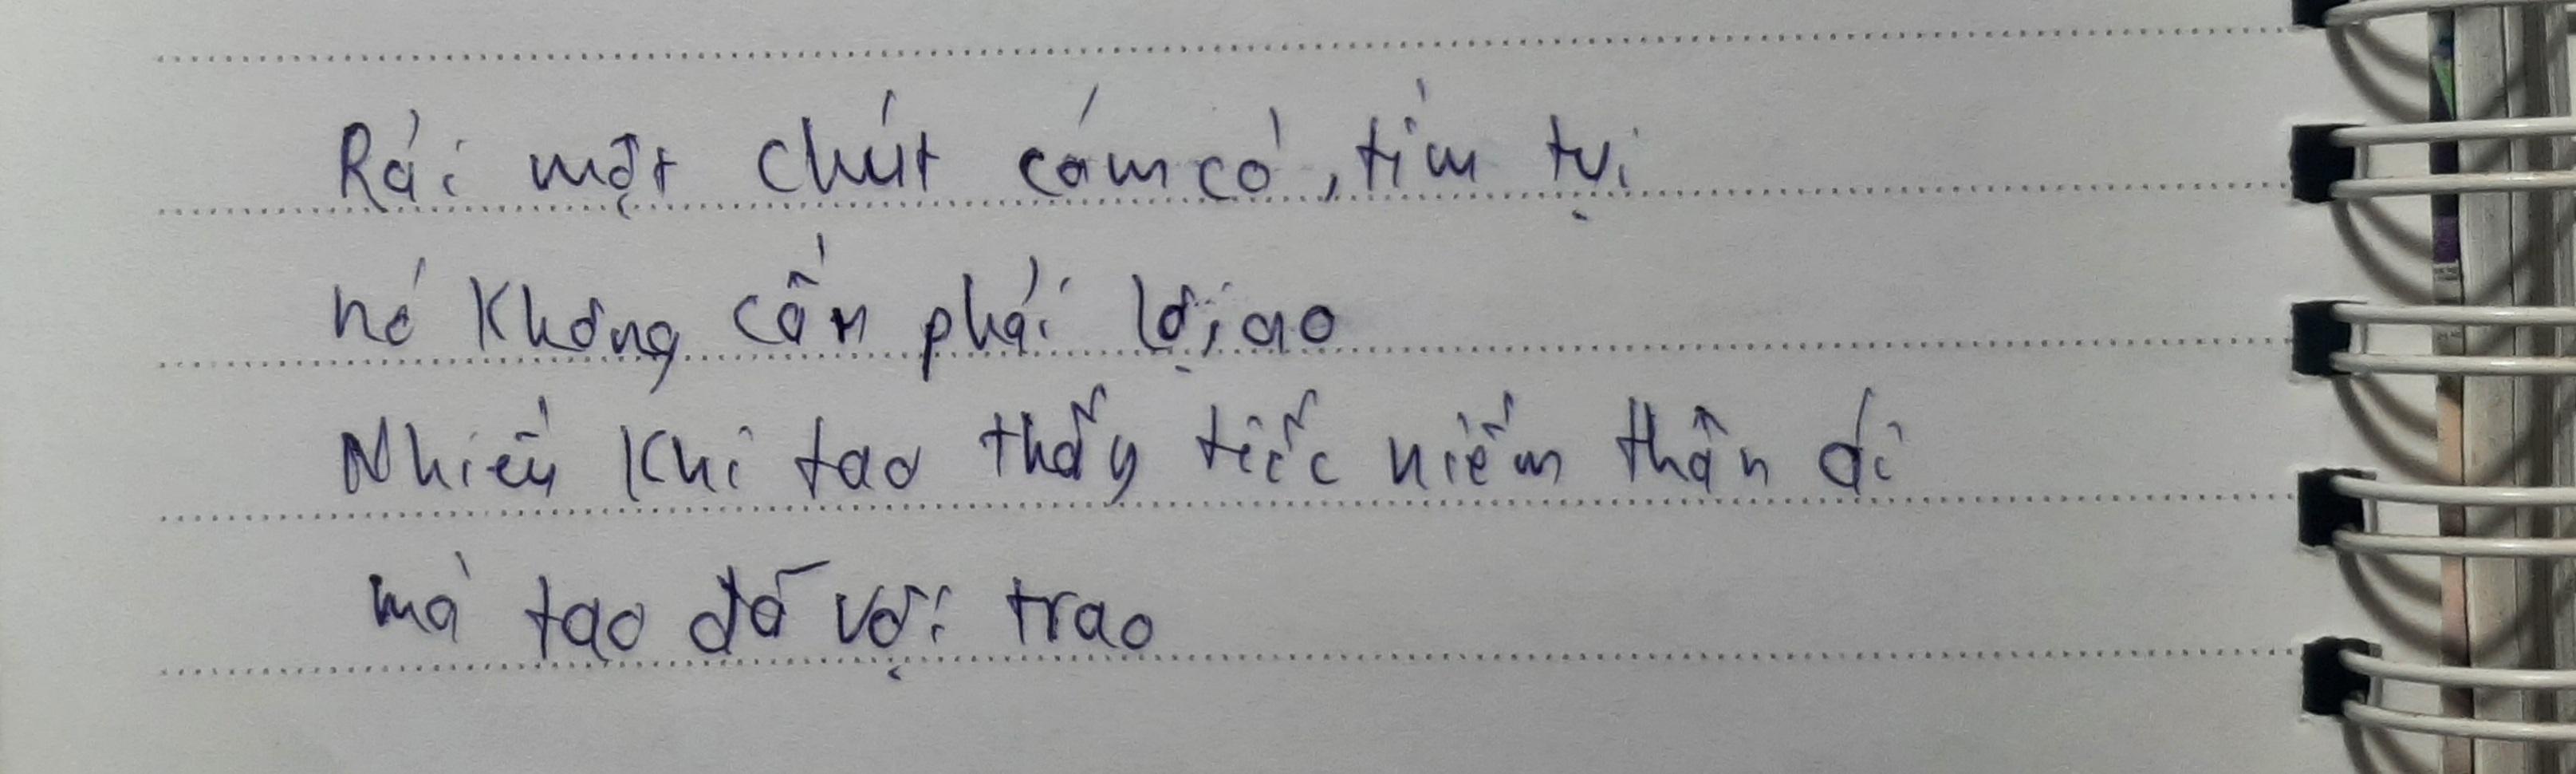 Rải một chút cám cò, tìm tụi
nó không cần phải lội ao
Nhiều khi tao thấy tiếc niềm thân ái
mà tao đã vội trao